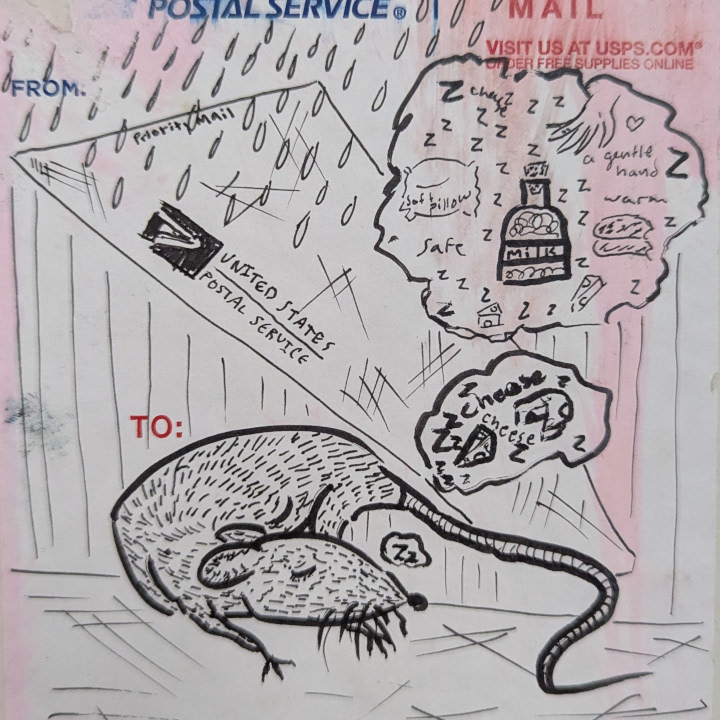 POSTAL SERVICE®
MAIL
VISIT US AT USPS.COM®
ORDER FREE SUPPLIES ONLINE
FROM:
Priority Mail
UNITED STATES
POSTAL SERVICE
TO:
Z
Z
Z
a gentle
hand
soft pillow
warm
safe
MilK
cheese
cheese
Zz